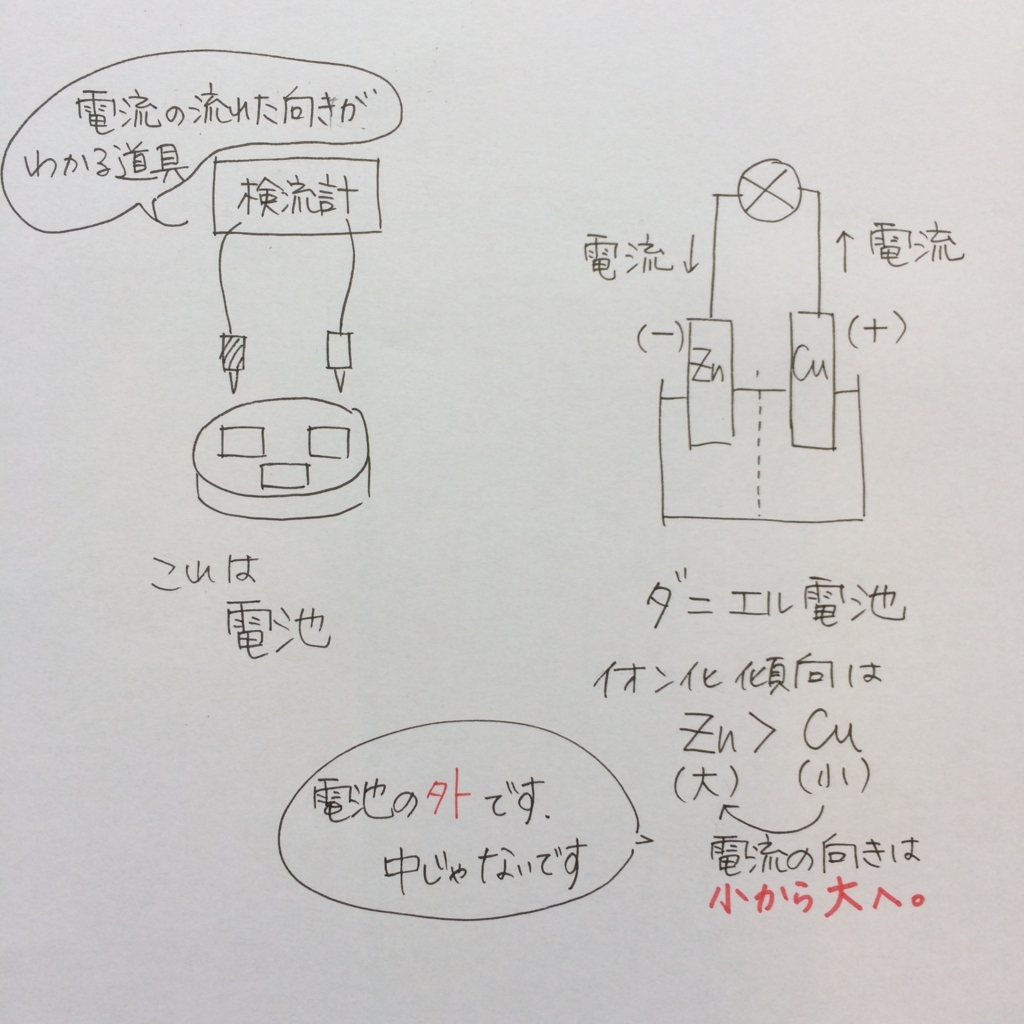 電流の流れた向きが
わかる道具
検流計
これは
電池
電流↓
↑電流
(−)
Zn
Cu
(+)
ダニエル電池
イオン化傾向は
Zn > Cu
(大) (小)
電流の向きは
小から大へ。
電池の外です.
中じゃないです